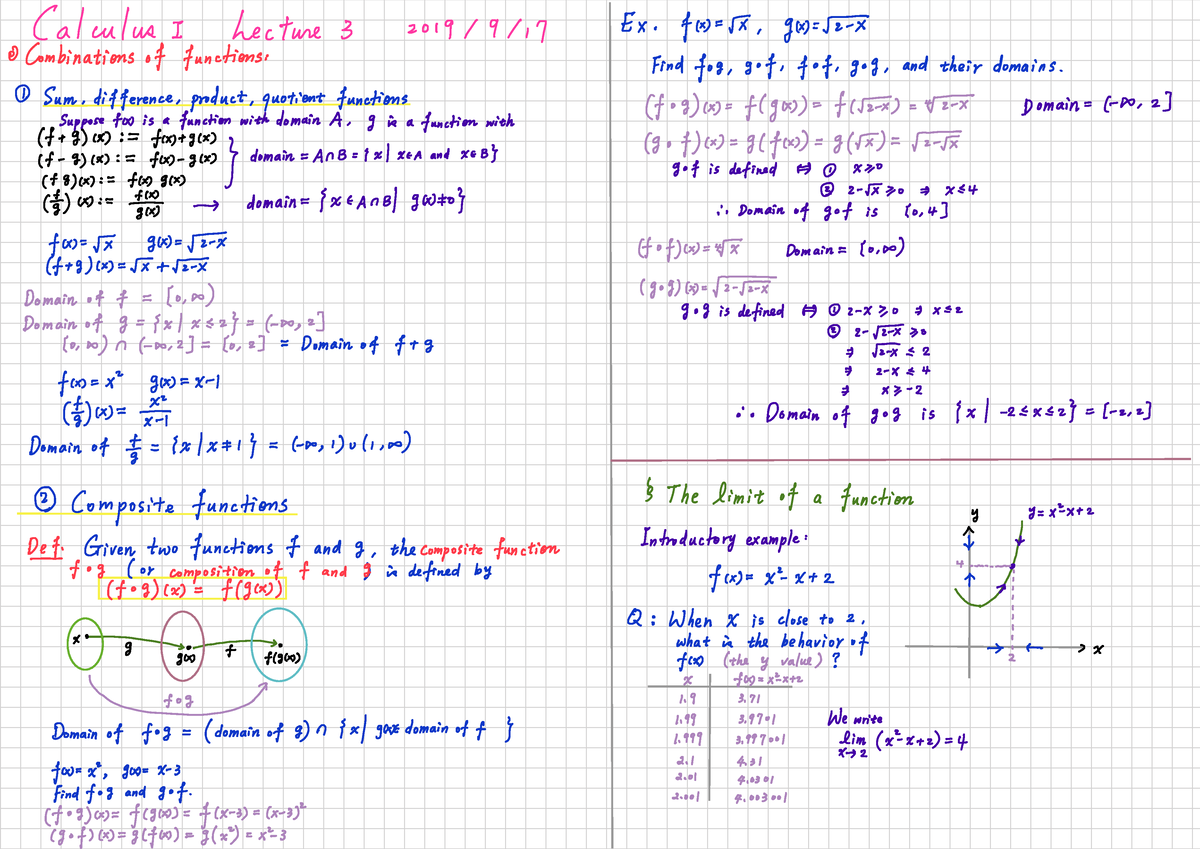 Calculus I Lecture 3 2019/9/17
Combinations of functions.
① Sum, difference, product, quotient functions
Suppose f(x) is a function with domain A, g is a function with
(f+g)(x) := f(x)+g(x)
(f-g)(x) := f(x)-g(x)
(fg)(x) := f(x) g(x)
domain = A∩B = {x| x∈A and x∈B}
(f/g)(x) := f(x)/g(x) → domain = {x∈A∩B| g(x)≠0}
f(x)=√x g(x)=√(2-x)
(f+g)(x)=√x+√(2-x)
Domain of f = [0,∞)
Domain of g = {x|x≤2} = (-∞,2]
[0,∞)∩(-∞,2] = [0,2] = Domain of f+g
f(x)=x² g(x)=x-1
(f/g)(x)= x²/(x-1)
Domain of f/g = {x|x≠1} = (-∞,1)∪(1,∞)
② Composite functions
Def. Given two functions f and g, the composite function
f∘g (or composition of f and g is defined by
(f∘g)(x) = f(g(x))
x g g(x) f f(g(x))
f∘g
Domain of f∘g = (domain of g)∩{x| g(x)∈ domain of f }
f(x)=x², g(x)=x-3
Find f∘g and g∘f.
(f∘g)(x)= f(g(x))= f(x-3)=(x-3)²
(g∘f)(x)=g(f(x))=g(x²)=x²-3
Ex. f(x)=√x, g(x)=√(2-x)
Find f∘g, g∘f, f∘f, g∘g, and their domains.
(f∘g)(x)= f(g(x))= f(√(2-x))=∜(2-x) Domain=(-∞,2]
(g∘f)(x)=g(f(x))=g(√x)=√(2-√x)
g∘f is defined ⇔ ① x≥0
② 2-√x≥0 ⇒ x≤4
∴ Domain of g∘f is [0,4]
(f∘f)(x)=∜x Domain= [0,∞)
(g∘g)(x)=√(2-√(2-x))
g∘g is defined ⇔ ① 2-x≥0 ⇒ x≤2
② 2-√(2-x)≥0
⇒ √(2-x)≤2
⇒ 2-x≤4
⇒ x≥-2
∴ Domain of g∘g is {x| -2≤x≤2}=[-2,2]
§ The limit of a function
Introductory example:
f(x)= x²-x+2
y y=x²-x+2
4
2 x
Q: When x is close to 2,
what is the behavior of
f(x) (the y value)?
x f(x)=x²-x+2
1.9 3.71
1.99 3.9701
1.999 3.997001
2.1 4.31
2.01 4.0301
2.001 4.003001
We write
lim x→2 (x²-x+2)=4